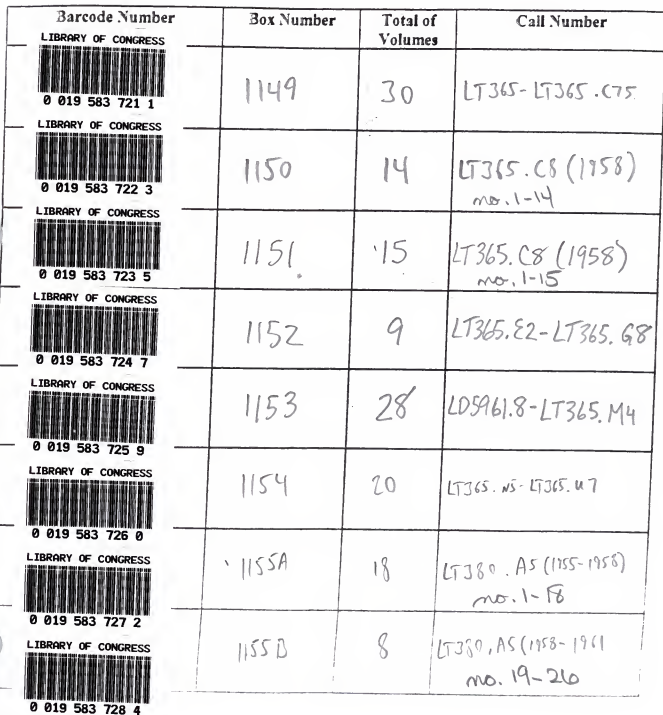 Barcode Number Box Number Total of Call Number
Volumes
LIBRARY OF CONGRESS
0 019 583 721 1
1149 30 LT365-LT365.C75
LIBRARY OF CONGRESS
0 019 583 722 3
1150 14 LT365.C8 (1958)
no. 1-14
LIBRARY OF CONGRESS
0 019 583 723 5
1151 15 LT365.C8 (1958)
no. 1-15
LIBRARY OF CONGRESS
0 019 583 724 7
1152 9 LT365.E2-LT365.G8
LIBRARY OF CONGRESS
0 019 583 725 9
1153 28 LD5961.8-LT365.M4
LIBRARY OF CONGRESS
0 019 583 726 0
1154 20 LT365.N5-LT365.U7
LIBRARY OF CONGRESS
0 019 583 727 2
1155A 18 LT380.A5 (1955-1958)
no. 1-18
LIBRARY OF CONGRESS
0 019 583 728 4
1155B 8 LT380.A5 (1958-1961
no. 19-26